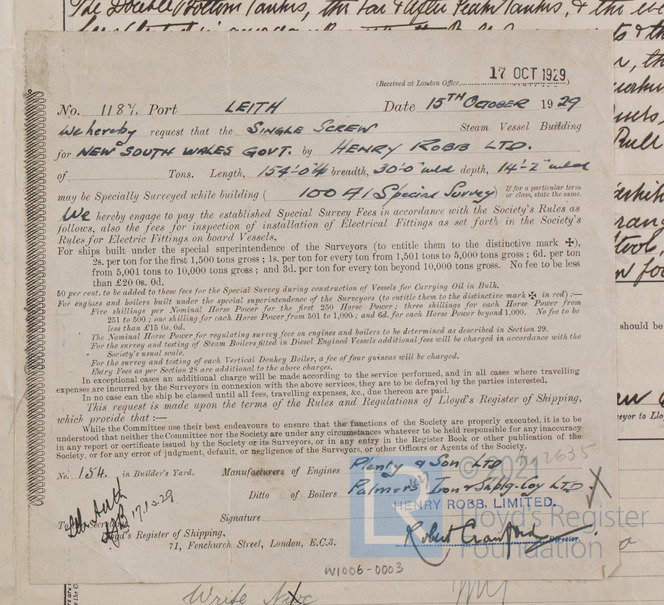 The Double Bottom Tanks, the Fore & After Peak Tanks, & the
(Received at London Office, 17 OCT 1929)
No. 1187. Port LEITH Date 15TH October 1929
We hereby request that the SINGLE SCREW Steam Vessel Building
for NEW SOUTH WALES GOVT. by HENRY ROBB LTD.
of Tons. Length, 154'-0" breadth, 30'-0" mld depth, 14'-2" mld
may be Specially Surveyed while building ( 100 A1 Special Survey) If for a particular term
or class, state the same.
We hereby engage to pay the established Special Survey Fees in accordance with the Society's Rules as
follows, also the fees for inspection of installation of Electrical Fittings as set forth in the Society's
Rules for Electric Fittings on board Vessels.
For ships built under the special superintendence of the Surveyors (to entitle them to the distinctive mark ✠),
2s. per ton for the first 1,500 tons gross; 1s. per ton for every ton from 1,501 tons to 5,000 tons gross; 6d. per ton
from 5,001 tons to 10,000 tons gross; and 3d. per ton for every ton beyond 10,000 tons gross. No fee to be less
than £20 0s. 0d.
50 per cent. to be added to these fees for the Special Survey during construction of Vessels for Carrying Oil in Bulk.
For engines and boilers built under the special superintendence of the Surveyors (to entitle them to the distinctive mark ✠ in red):—
Five shillings per Nominal Horse Power for the first 250 Horse Power; three shillings for each Horse Power from
251 to 500; one shilling for each Horse Power from 501 to 1,000; and 6d. for each Horse Power beyond 1,000. No fee to be
less than £15 0s. 0d.
The Nominal Horse Power for regulating survey fees on engines and boilers to be determined as described in Section 29.
For the survey and testing of Steam Boilers fitted in Diesel Engined Vessels additional fees will be charged in accordance with the
Society's usual scale.
For the survey and testing of each Vertical Donkey Boiler, a fee of four guineas will be charged.
Entry Fees as per Section 28 are additional to the above charges.
In exceptional cases an additional charge will be made according to the service performed, and in all cases where travelling
expenses are incurred by the Surveyors in connexion with the above services, they are to be defrayed by the parties interested.
In no case can the ship be classed until all fees, travelling expenses, &c., due thereon are paid.
This request is made upon the terms of the Rules and Regulations of Lloyd's Register of Shipping,
which provide that:—
While the Committee use their best endeavours to ensure that the functions of the Society are properly executed, it is to be
understood that neither the Committee nor the Society are under any circumstances whatever to be held responsible for any inaccuracy
in any report or certificate issued by the Society or its Surveyors, or in any entry in the Register Book or other publication of the
Society, or for any error of judgment, default, or negligence of the Surveyors, or other Officers or Agents of the Society.
should be
No. 154. in Builder's Yard. Manufacturers of Engines Plenty & Son LTD
© 2021
Ditto of Boilers Palmers Iron & Shpblg. Coy LTD
HENRY ROBB, LIMITED.
17.10.29
Signature Robert Crawford
Lloyd's Register of Shipping,
71, Fenchurch Street, London, E.C.3.
Lloyd's Register
Foundation
W1006-0003
Write